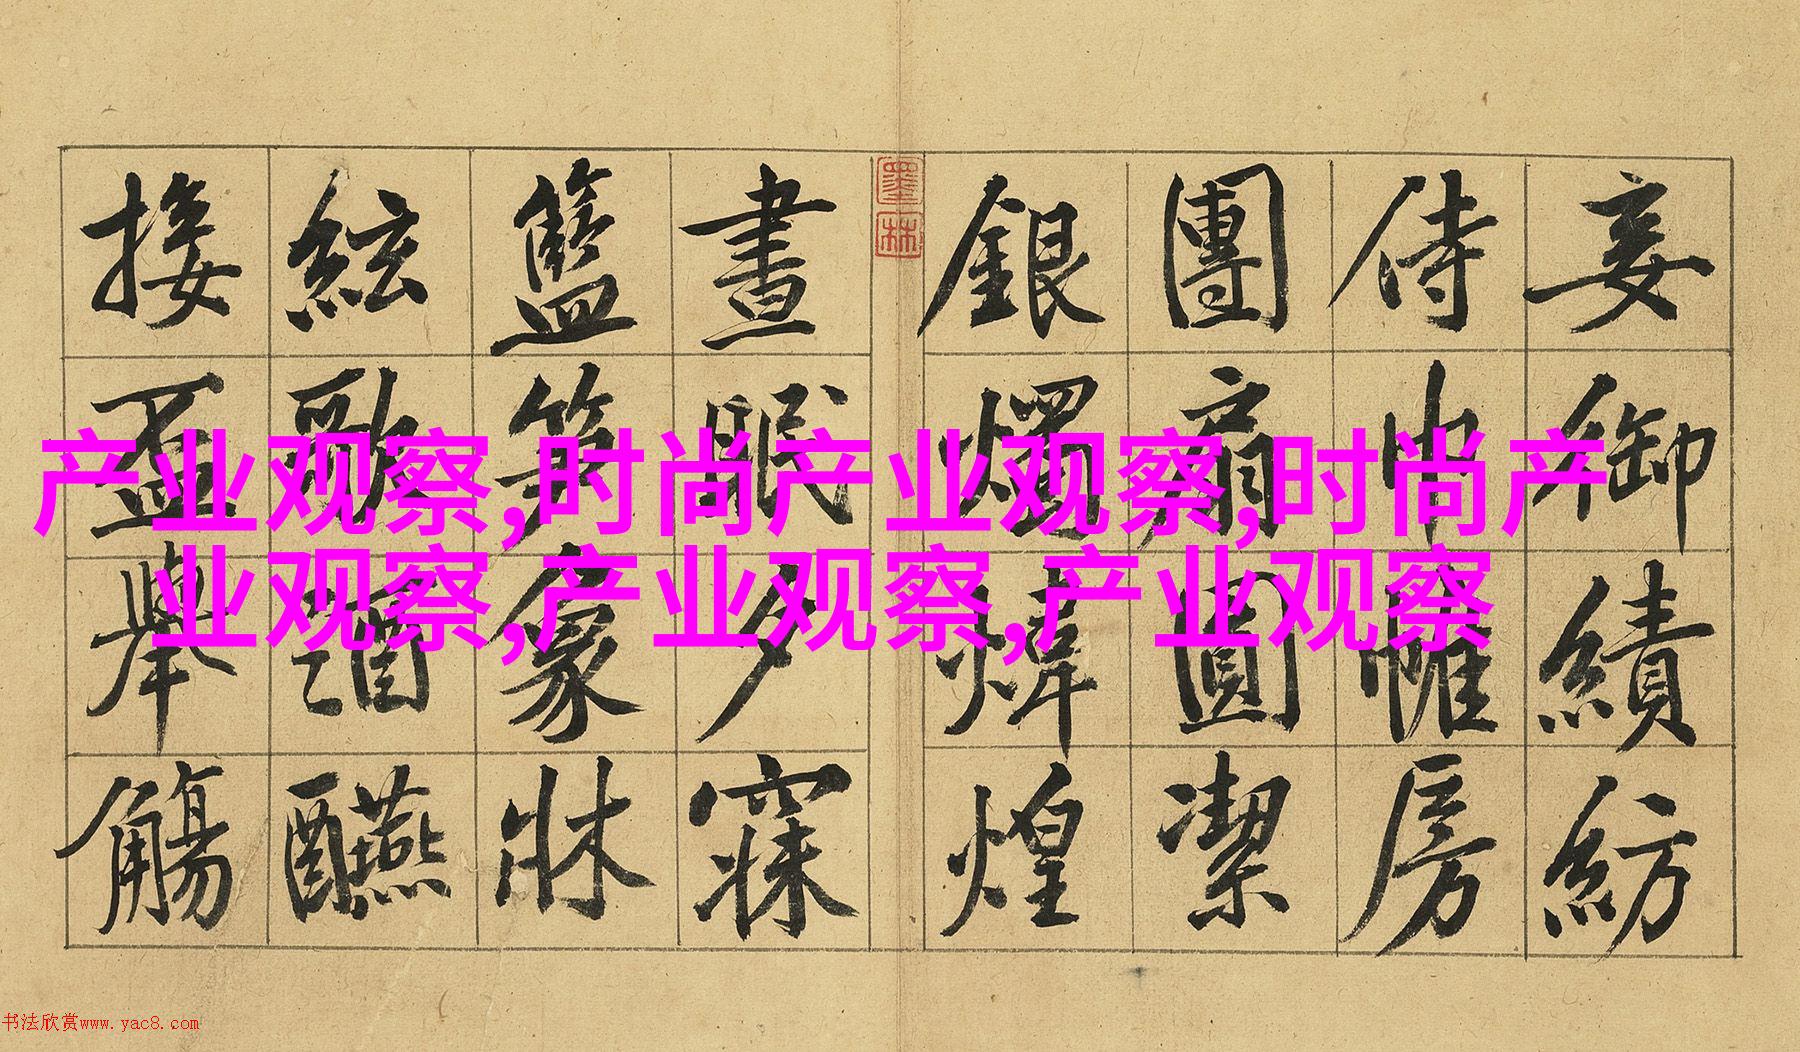 妾御績紡
侍巾帷房
團扇圓潔
銀燭煒煌
墨林
晝眠夕寐
籃笋象牀
絃歌酒醼
接盃舉觴
产业观察,时尚产业观察,时尚产
业观察,产业观察,产业观察
书法欣赏www.yac8.com